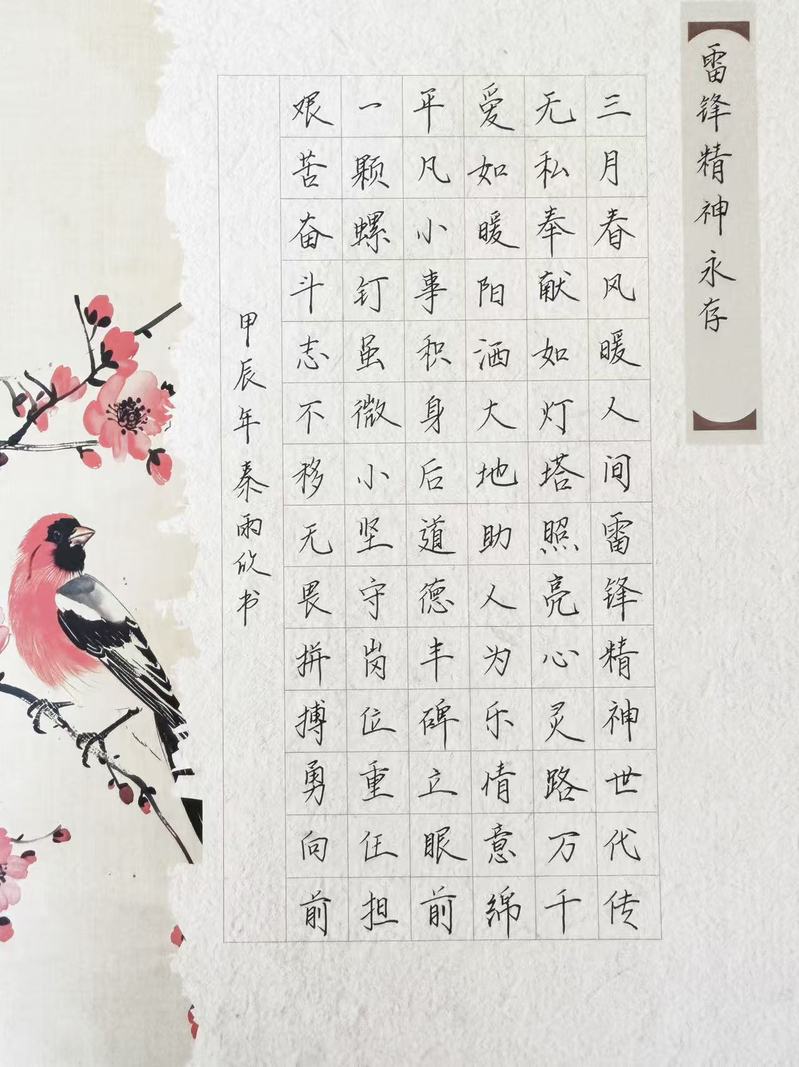 雷锋精神永存
三月春风暖人间雷锋精神世代传
无私奉献如灯塔照亮心灵路万千
爱如暖阳洒大地助人为乐情意绵
平凡小事积身后道德丰碑立眼前
一颗螺钉虽微小坚守岗位重任担
艰苦奋斗志不移无畏拼搏勇向前
甲辰年秦雨欣书